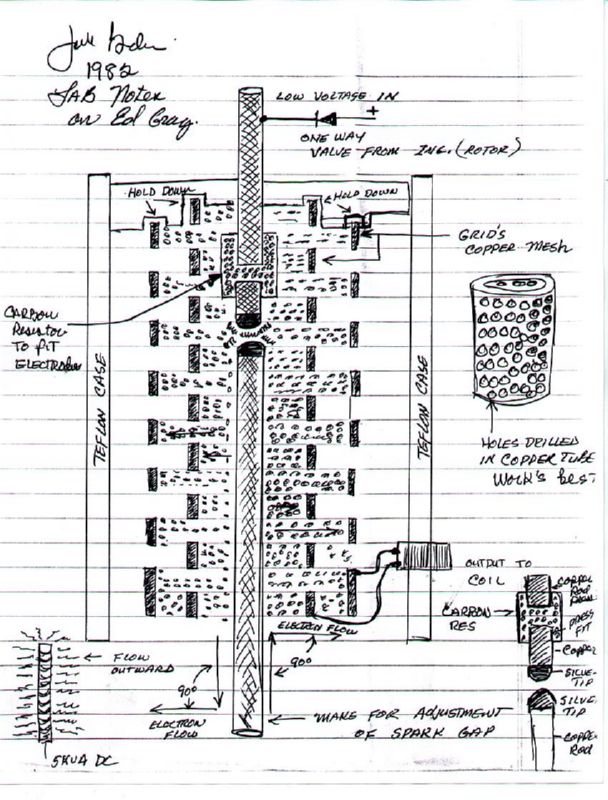 1982
LAB Notes
on Ed Gray.
LOW VOLTAGE IN
+
ONE WAY
VALVE FROM ING. (ROTOR)
HOLD DOWN
HOLD DOWN
GRID'S
COPPER MESH
CARBON
RESISTOR
TO FIT
ELECTRODES
TEFLON CASE
TEFLON CASE
HOLES DRILLED
IN COPPER TUBE
WORK'S BEST
OUTPUT TO
COIL
COPPER
ROD
CARBON
RES
PRESS
FIT
COPPER
SILVE
TIP
SILVE
TIP
COPPER
ROD
ELECTRON FLOW
90°
FLOW
OUTWARD
90°
ELECTRON
FLOW
MAKE FOR ADJUSTMENT
OF SPARK GAP
5KVA DC